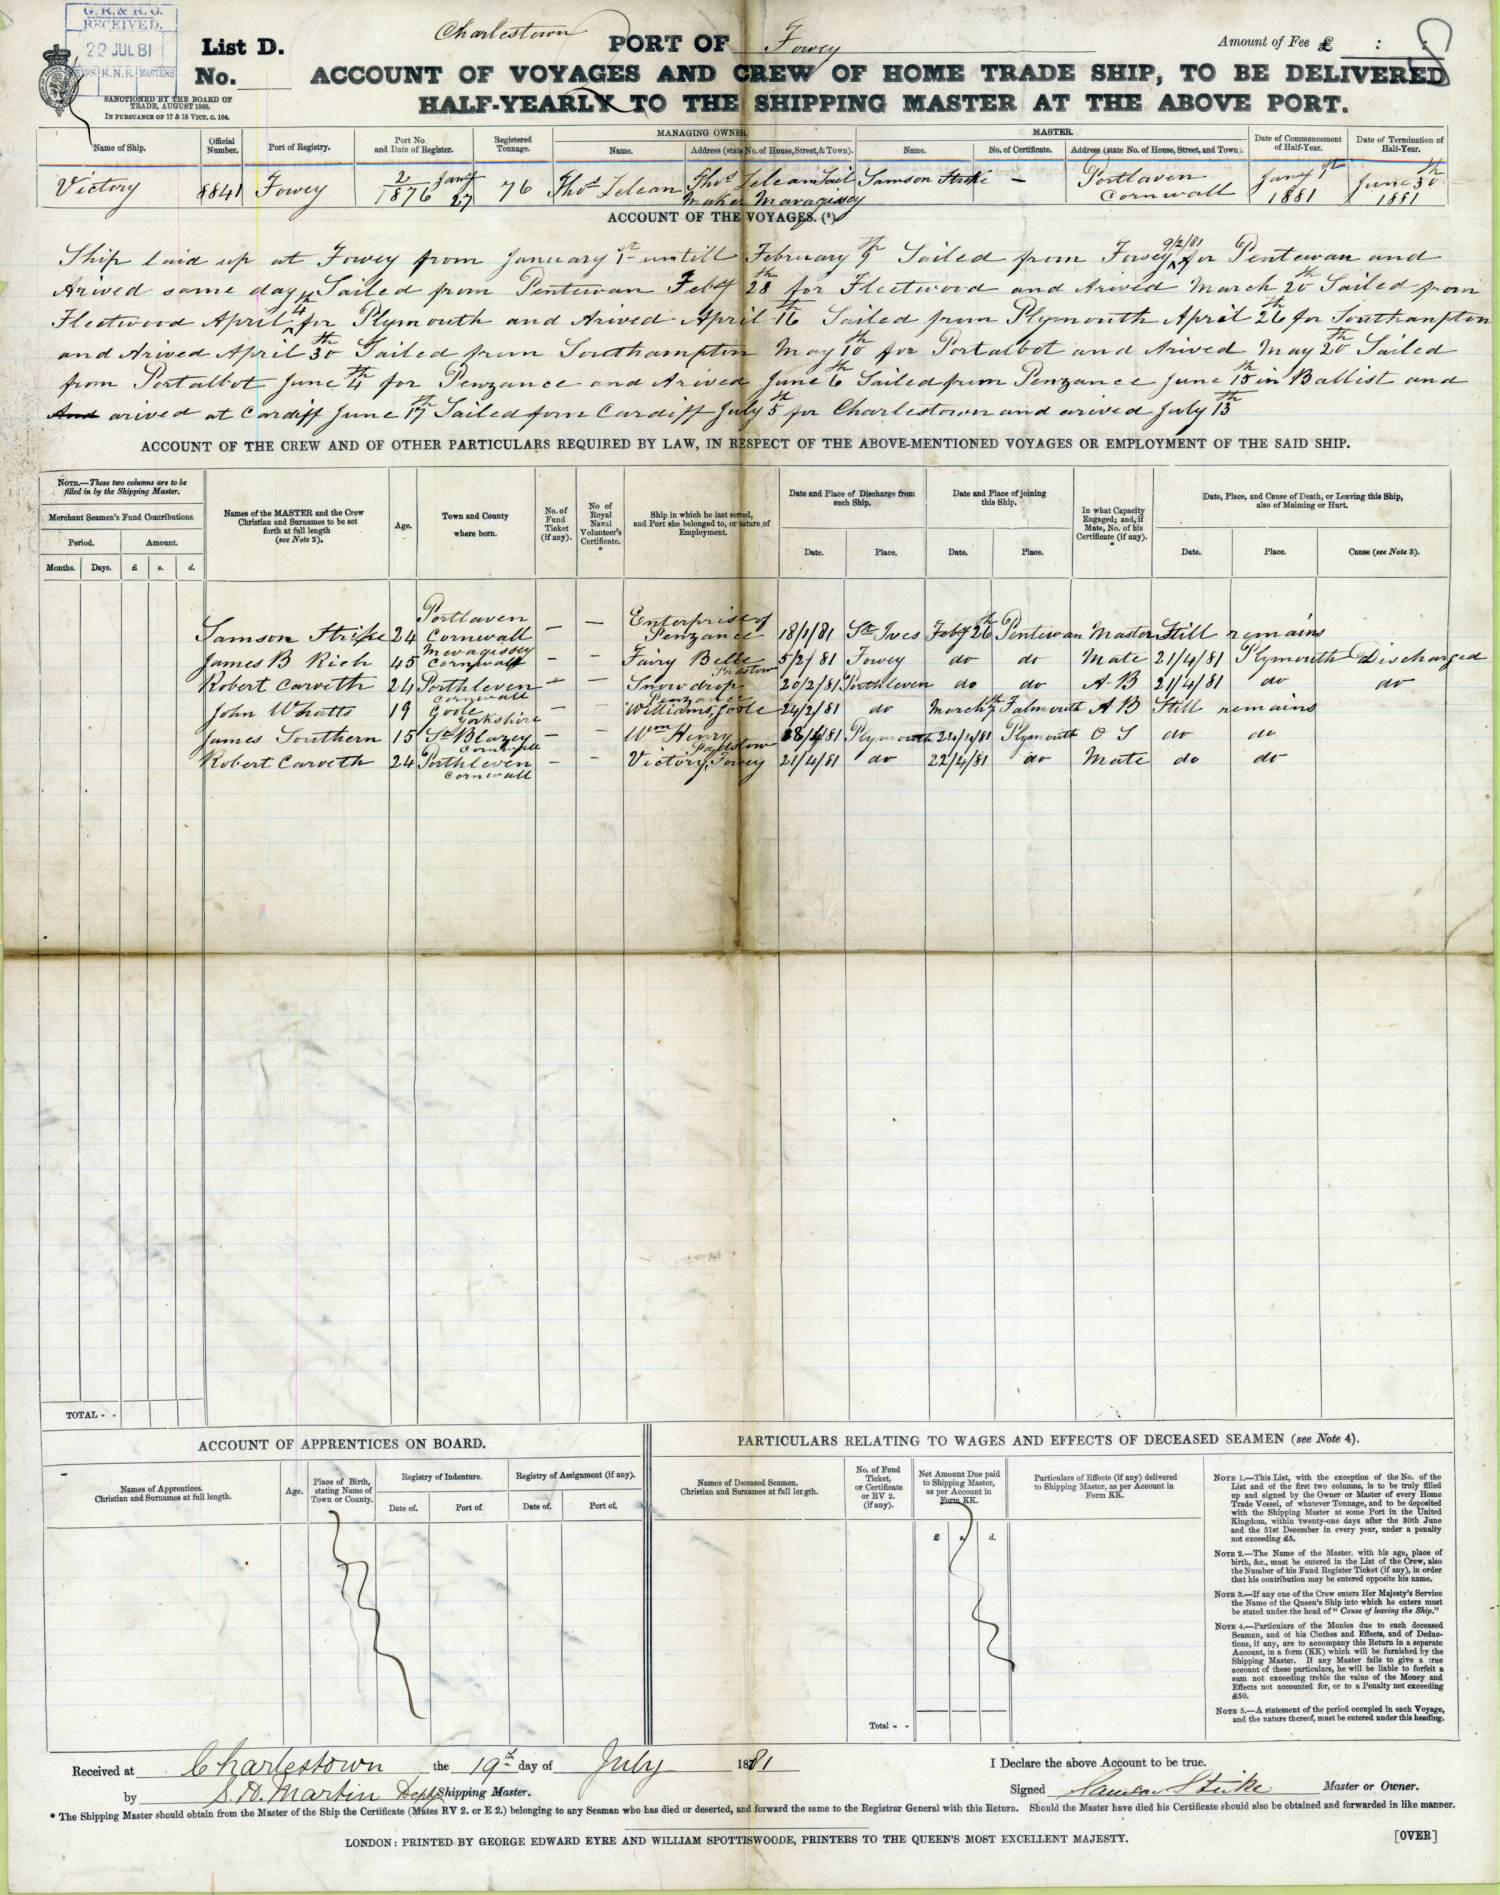 G.R. & R.O.
RECEIVED.
22 JUL 81
SHIPS R.N.R. MASTERS
List D.
No.
SANCTIONED BY THE BOARD OF
TRADE, AUGUST 1860.
IN PURSUANCE OF 17 & 18 VICT. C. 104.
Charlestown PORT OF Fowey Amount of Fee £ : :
ACCOUNT OF VOYAGES AND CREW OF HOME TRADE SHIP, TO BE DELIVERED
HALF-YEARLY TO THE SHIPPING MASTER AT THE ABOVE PORT.
Name of Ship. Official Number. Port of Registry. Port No and Date of Register. Registered Tonnage. MANAGING OWNER. Name. Address (state No. of House, Street, & Town). MASTER. Name. No. of Certificate. Address (state No. of House, Street, and Town). Date of Commencement of Half-Year. Date of Termination of Half-Year.
Victory 8841 Fowey 2/1876 Jany 27 76 Thos Lelean Thos Lelean Sail Maker Mavagissey Samson Strike – Portlaven Cornwall Jany 1st 1881 June 30th 1881
ACCOUNT OF THE VOYAGES. (5)
Ship laid up at Fowey from January 1st untill February 9th Sailed from Fowey 9/2/81 for Pentewan and
Arived same day Sailed from Pentewan Feby 28th for Fleetwood and Arived March 20th Sailed from
Fleetwood April 4th for Plymouth and Arived April 16th Sailed from Plymouth April 26th for Southampton
and Arived April 30th Sailed from Southampton May 10th for Portalbot and Arived May 20th Sailed
from Portalbot June 4th for Penzance and Arived June 6th Sailed from Penzance June 15th in Ballist and
And arived at Cardiff June 17th Sailed form Cardiff July 5th for Charlestown and arived July 13th
ACCOUNT OF THE CREW AND OF OTHER PARTICULARS REQUIRED BY LAW, IN RESPECT OF THE ABOVE-MENTIONED VOYAGES OR EMPLOYMENT OF THE SAID SHIP.
NOTE.—These two columns are to be
filled in by the Shipping Master.
Merchant Seamen's Fund Contributions.
Period. Amount.
Months. Days. £ s. d.
Names of the MASTER and the Crew
Christian and Surnames to be set
forth at full length
(see Note 2).
Age.
Town and County
where born.
No. of
Fund
Ticket
(if any).
No of
Royal
Naval
Volunteer's
Certificate.
*
Ship in which he last served,
and Port she belonged to, or nature of
Employment.
Date and Place of Discharge from
such Ship.
Date. Place.
Date and Place of joining
this Ship.
Date. Place.
In what Capacity
Engaged; and, if
Mate, No. of his
Certificate (if any).
*
Date, Place, and Cause of Death, or Leaving this Ship,
also of Maiming or Hurt.
Date. Place. Cause (see Note 3).
Samson Strike 24 Portlaven Cornwall – – Enterprise of Penzance 18/1/81 St Ives Feby 26th Pentewan Master Still remains
James B Rich 45 Mevagissey Cornwall – – Fairy Belle Padstow 5/2/81 Fowey do do Mate 21/4/81 Plymouth Discharged
Robert Carveth 24 Porthleven Cornwall – – Snowdrop Penzance 20/2/81 Porthleven do do A B 21/4/81 do do
John Whatts 19 Goole Yorkshire – – Williams, Goole 24/2/81 do March 7th Falmouth A B Still remains
James Southern 15 St Blazey Cornwall – – Wm Henry Padstow 18/4/81 Plymouth 21/4/81 Plymouth O S do do
Robert Carveth 24 Porthleven Cornwall – – Victory, Fowey 21/4/81 do 22/4/81 do Mate do do
TOTAL - -
ACCOUNT OF APPRENTICES ON BOARD.
Names of Apprentices.
Christian and Surnames at full length.
Age.
Place of Birth,
stating Name of
Town or County.
Registry of Indenture.
Date of. Port of.
Registry of Assignment (if any).
Date of. Port of.
PARTICULARS RELATING TO WAGES AND EFFECTS OF DECEASED SEAMEN (see Note 4).
Names of Deceased Seamen.
Christian and Surnames at full length.
No. of Fund
Ticket,
or Certificate
or RV 2.
(if any).
Net Amount Due paid
to Shipping Master,
as per Account in
Form KK.
£ s. d.
Particulars of Effects (if any) delivered
to Shipping Master, as per Account in
Form KK.
Total - -
NOTE 1.—This List, with the exception of the No. of the
List and of the first two columns, is to be truly filled
up and signed by the Owner or Master of every Home
Trade Vessel, of whatever Tonnage, and to be deposited
with the Shipping Master at some Port in the United
Kingdom, within twenty-one days after the 30th June
and the 31st December in every year, under a penalty
not exceeding £5.
NOTE 2.—The Name of the Master, with his age, place of
birth, &c., must be entered in the List of the Crew, also
the Number of his Fund Register Ticket (if any), in order
that his contribution may be entered opposite his name.
NOTE 3.—If any one of the Crew enters Her Majesty's Service
the Name of the Queen's Ship into which he enters must
be stated under the head of "Cause of leaving the Ship."
NOTE 4.—Particulars of the Monies due to each deceased
Seaman, and of his Clothes and Effects, and of Deduc-
tions, if any, are to accompany this Return in a separate
Account, in a form (KK) which will be furnished by the
Shipping Master. If any Master fails to give a true
account of these particulars, he will be liable to forfeit a
sum not exceeding treble the value of the Money and
Effects not accounted for, or to a Penalty not exceeding
£50.
NOTE 5.—A statement of the period occupied in each Voyage,
and the nature thereof, must be entered under this heading.
Received at Charlestown the 19th day of July 1881
by S. H. Martin Depty Shipping Master.
I Declare the above Account to be true.
Signed Samson Strike Master or Owner.
* The Shipping Master should obtain from the Master of the Ship the Certificate (Mates RV 2. or E 2.) belonging to any Seaman who has died or deserted, and forward the same to the Registrar General with this Return. Should the Master have died his Certificate should also be obtained and forwarded in like manner.
LONDON: PRINTED BY GEORGE EDWARD EYRE AND WILLIAM SPOTTISWOODE, PRINTERS TO THE QUEEN'S MOST EXCELLENT MAJESTY.
[OVER]